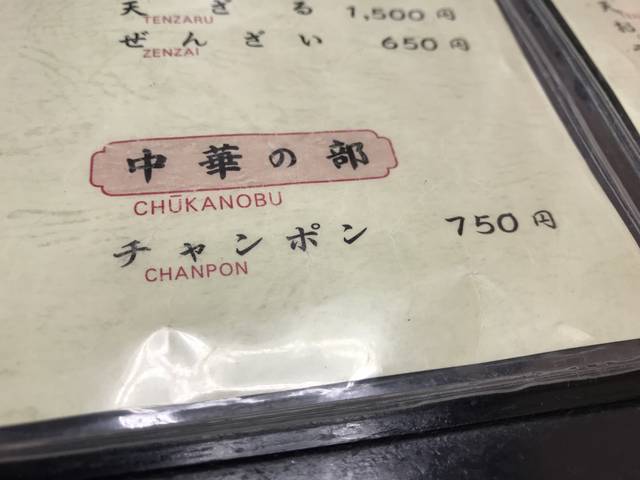 天ざる 1,500円
TENZARU
ぜんざい 650円
ZENZAI
中華の部
CHŪKANOBU
チャンポン 750円
CHANPON